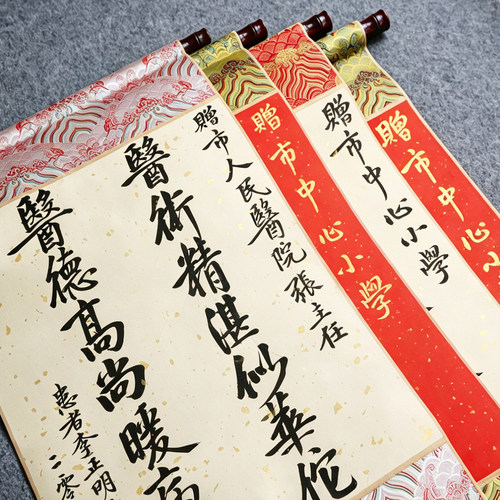 贈市人民醫院張主任
醫術精湛似華佗
醫德高尚暖病
患者李正明
二零
贈市中心小学
贈市中心小学
贈市中心小